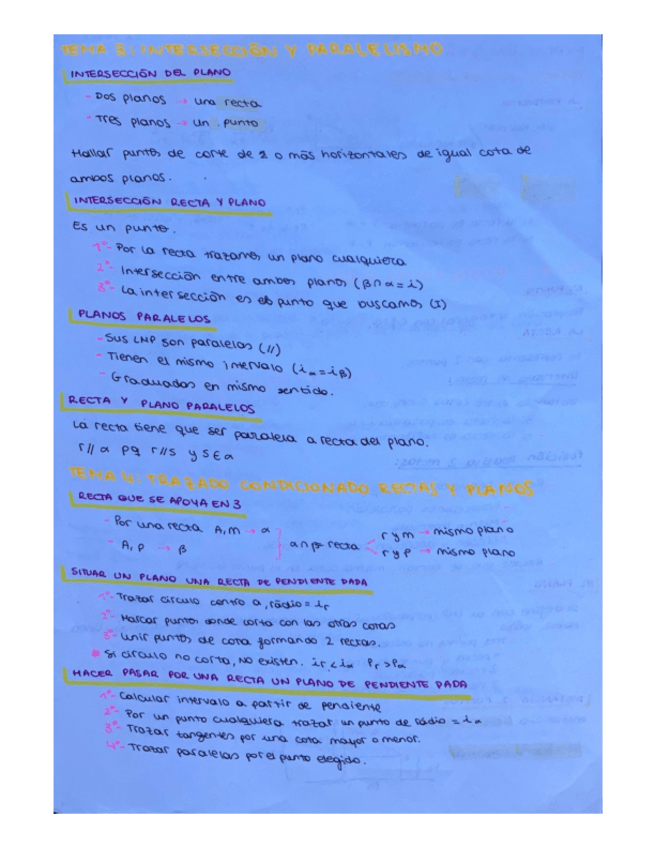 TEMA 3: INTERSECCIÓN Y PARALELISMO
INTERSECCIÓN DEL PLANO
- Dos planos → una recta
- Tres planos → un punto
Hallar puntos de corte de 2 o más horizontales de igual cota de
ambos planos.
INTERSECCIÓN RECTA Y PLANO
Es un punto.
1º- Por la recta trazamos un plano cualquiera
2º- Intersección entre ambos planos (β∩α=i)
3º- La intersección es el punto que buscamos (I)
PLANOS PARALELOS
- Sus LMP son paralelos (//)
- Tienen el mismo intervalo (iα=iβ)
- Graduados en mismo sentido.
RECTA Y PLANO PARALELOS
La recta tiene que ser paralela a recta del plano.
r//α pq r//s y s∈α
TEMA 4: TRAZADO CONDICIONADO RECTAS Y PLANOS
RECTA QUE SE APOYA EN 3
- Por una recta A,m → α
- A,p → β
α∩β= recta
r y m → mismo plano
r y p → mismo plano
SITUAR UN PLANO UNA RECTA DE PENDIENTE DADA
1º- Trazar círculo centro a, radio = ir
2º- Marcar puntos donde corta con las otras cotas
3º- Unir puntos de cota formando 2 rectas.
* Si círculo no corta, no existen. ir<iα Pr>Pα
HACER PASAR POR UNA RECTA UN PLANO DE PENDIENTE DADA
1º- Calcular intervalo a partir de pendiente
2º- Por un punto cualquiera trazar un punto de radio = iα
3º- Trazar tangentes por una cota mayor o menor.
4º- Trazar paralelas por el punto elegido.